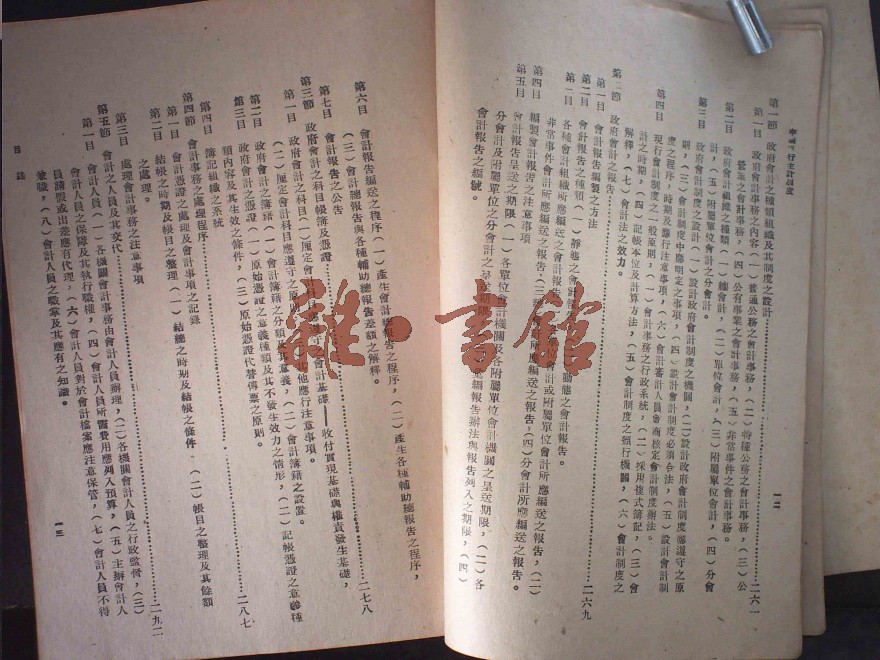 中國現行主計制度
一二
第一節 政府會計之種類組織及其制度之設計……二六一
第一目 政府會計事務之內容(一)普通公務之會計事務,(二)特種公務之會計事務,(三)公
營業之會計事務,(四)公有事業之會計事務,(五)非常事件之會計事務。
第二目 政府會計組織之種類(一)總會計,(二)單位會計,(三)附屬單位會計,(四)分會
計,(五)附屬單位會計之分會計。
第三目 政府會計制度之設計(一)設計政府會計制度之機關,(二)設計政府會計制度應遵守之原
則,(三)會計制度中應明定之事項,(四)設計會計制度必須合法,(五)設計會計制
度之程序,時期及應行注意事項,(六)會計審計人員會商核定會計制度辦法。
第四目 現行會計制度之一般原則,(一)會計制度之行政系統,(二)採用複式簿記,(三)會
計之時期,(四)記帳本位及計算方法,(五)會計制度之頒行機關,(六)會計制度之
解釋,(七)會計法之效力。
第二節 政府會計之報告……二六九
第一目 會計報告編製之方法
第二目 會計報告之種類(一)靜態之會計報告,動態之會計報告。
第一目 各種會計組織所應編送之會計報告,單位會計所應編送之報告,(二)
非常事件會計所應編送之報告,(三)會計或附屬單位會計所應編送之報告,(四)分會計所應編送之報告。
第四目 編製會計報告之注意事項
第五目 會計報告呈送之期限(一)各單位會計機關及各附屬單位會計機關之呈送期限,(二)各
分會計及附屬單位之分會計之呈送期限,編報告辦法與報告列入之期限,(四)
會計報告之編號。
第六目 會計報告編送之程序(一)產生會計總報告之程序,(二)產生各種輔助總報告之程序,
(三)會計總報告與各種輔助總報告差額之解釋。
第七目 會計報告之公告
第三節 政府會計之科目帳簿及憑證……二七八
第一目 政府會計之科目(一)厘定會計科目應遵守之會計基礎——收付實現基礎與權責發生基礎,
(二)厘定會計科目應遵守之原則,其他應行注意事項。
第二目 政府會計之簿籍(一)會計簿籍之分類及其意義,(二)會計簿籍之設置。
第三目 政府會計之憑證(一)原始憑證之意義種類及其不發生效力之情形,(二)記帳憑證之意義種
類內容及其生效之條件,(三)原始憑證代替傳票之原則。
第四目 簿記組織之系統
第四節 會計事務之處理程序……二八七
第一目 會計憑證之處理及會計事項之記錄
第二目 結帳之時期及帳目之整理(一)結總之時期及結帳之條件,(二)帳目之整理及其餘額
之處理。
第三目 處理會計事務之注意事項
第五節 會計之人員及其交代……二九二
第一目 會計人員(一)各機關會計事務由會計人員辦理,(二)各機關會計人員之行政監督,(三)
會計人員之保障及其執行職權,(四)會計人員所需費用應列入預算,(五)主辦會計人
員請假或出差應有代理,(六)會計人員對於會計檔案應注意保管,(七)會計人員不得
兼職,(八)會計人員之職掌及其應有之知識。
目錄
一三
雜·書館